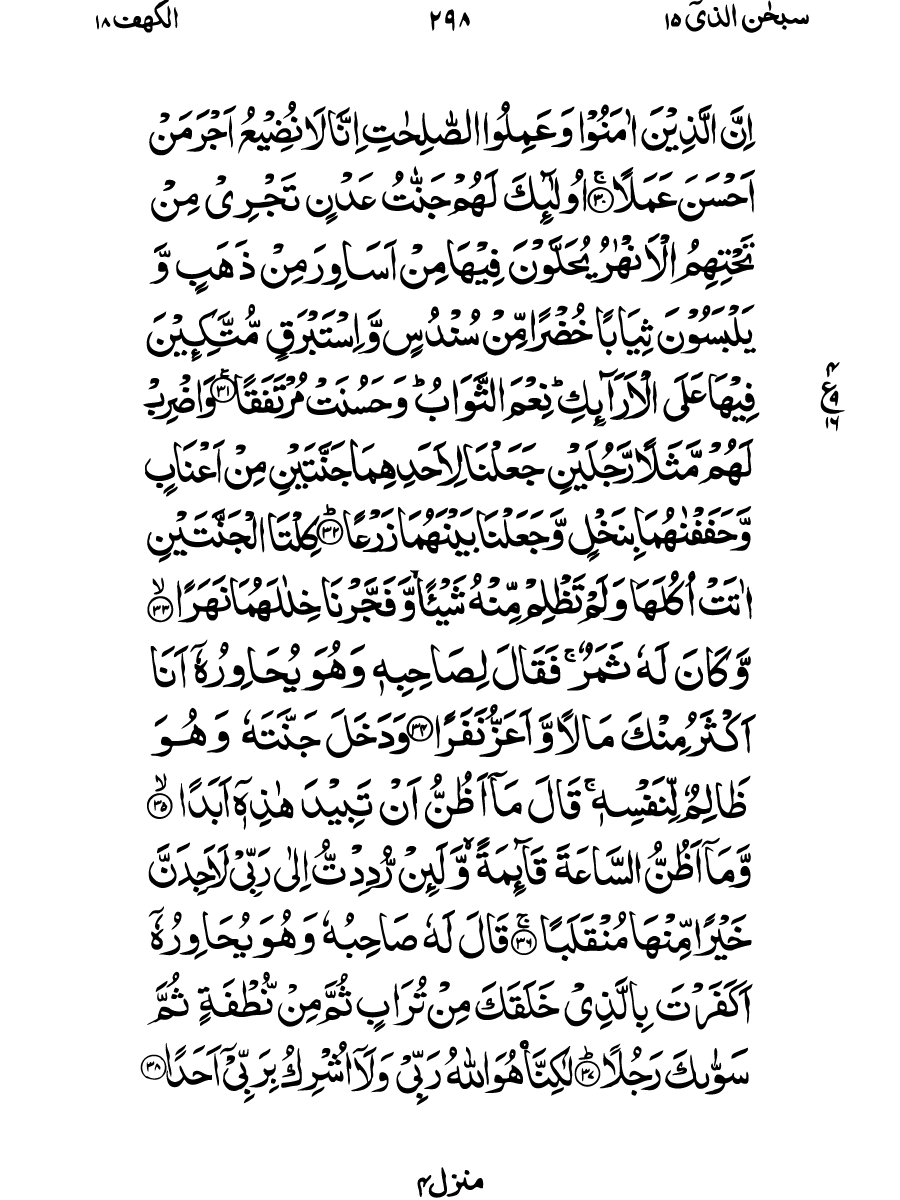 سبحٰن الذیٓ ۱۵ ۲۹۸ الکهف ۱۸
اِنَّ الَّذِیْنَ اٰمَنُوْا وَعَمِلُوا الصّٰلِحٰتِ اِنَّا لَا نُضِیْعُ اَجْرَ مَنْ
اَحْسَنَ عَمَلًا ۚ‏﴿۳۰﴾ اُولٰٓئِكَ لَهُمْ جَنّٰتُ عَدْنٍ تَجْرِیْ مِنْ
تَحْتِهِمُ الْاَنْهٰرُ یُحَلَّوْنَ فِیْهَا مِنْ اَسَاوِرَ مِنْ ذَهَبٍ وَّ
یَلْبَسُوْنَ ثِیَابًا خُضْرًا مِّنْ سُنْدُسٍ وَّ اِسْتَبْرَقٍ مُّتَّكِـِٕیْنَ
فِیْهَا عَلَی الْاَرَآئِكِ ؕ نِعْمَ الثَّوَابُ ؕ وَ حَسُنَتْ مُرْتَفَقًا ﴿۳۱﴾ؕ وَ اضْرِبْ
لَهُمْ مَّثَلًا رَّجُلَیْنِ جَعَلْنَا لِاَحَدِهِمَا جَنَّتَیْنِ مِنْ اَعْنَابٍ
وَّ حَفَفْنٰهُمَا بِنَخْلٍ وَّ جَعَلْنَا بَیْنَهُمَا زَرْعًا ﴿۳۲﴾ؕ كِلْتَا الْجَنَّتَیْنِ
اٰتَتْ اُكُلَهَا وَ لَمْ تَظْلِمْ مِّنْهُ شَیْـًٔا ۙ وَّ فَجَّرْنَا خِلٰلَهُمَا نَهَرًا ﴿۳۳﴾ۙ
وَّ كَانَ لَهٗ ثَمَرٌ ۚ فَقَالَ لِصَاحِبِهٖ وَ هُوَ یُحَاوِرُهٗۤ اَنَا
اَكْثَرُ مِنْكَ مَالًا وَّ اَعَزُّ نَفَرًا ﴿۳۴﴾ وَ دَخَلَ جَنَّتَهٗ وَ هُوَ
ظَالِمٌ لِّنَفْسِهٖ ۚ قَالَ مَاۤ اَظُنُّ اَنْ تَبِیْدَ هٰذِهٖۤ اَبَدًا ﴿۳۵﴾ۙ
وَّ مَاۤ اَظُنُّ السَّاعَةَ قَآئِمَةً ۙ وَّ لَئِنْ رُّدِدْتُّ اِلٰی رَبِّیْ لَاَجِدَنَّ
خَیْرًا مِّنْهَا مُنْقَلَبًا ﴿۳۶﴾ۚ قَالَ لَهٗ صَاحِبُهٗ وَ هُوَ یُحَاوِرُهٗۤ
اَكَفَرْتَ بِالَّذِیْ خَلَقَكَ مِنْ تُرَابٍ ثُمَّ مِنْ نُّطْفَةٍ ثُمَّ
سَوّٰىكَ رَجُلًا ﴿۳۷﴾ؕ لٰكِنَّا۠ هُوَ اللّٰهُ رَبِّیْ وَ لَاۤ اُشْرِكُ بِرَبِّیْۤ اَحَدًا ﴿۳۸﴾
۴
ع
۹
۱۶
منزل ۴